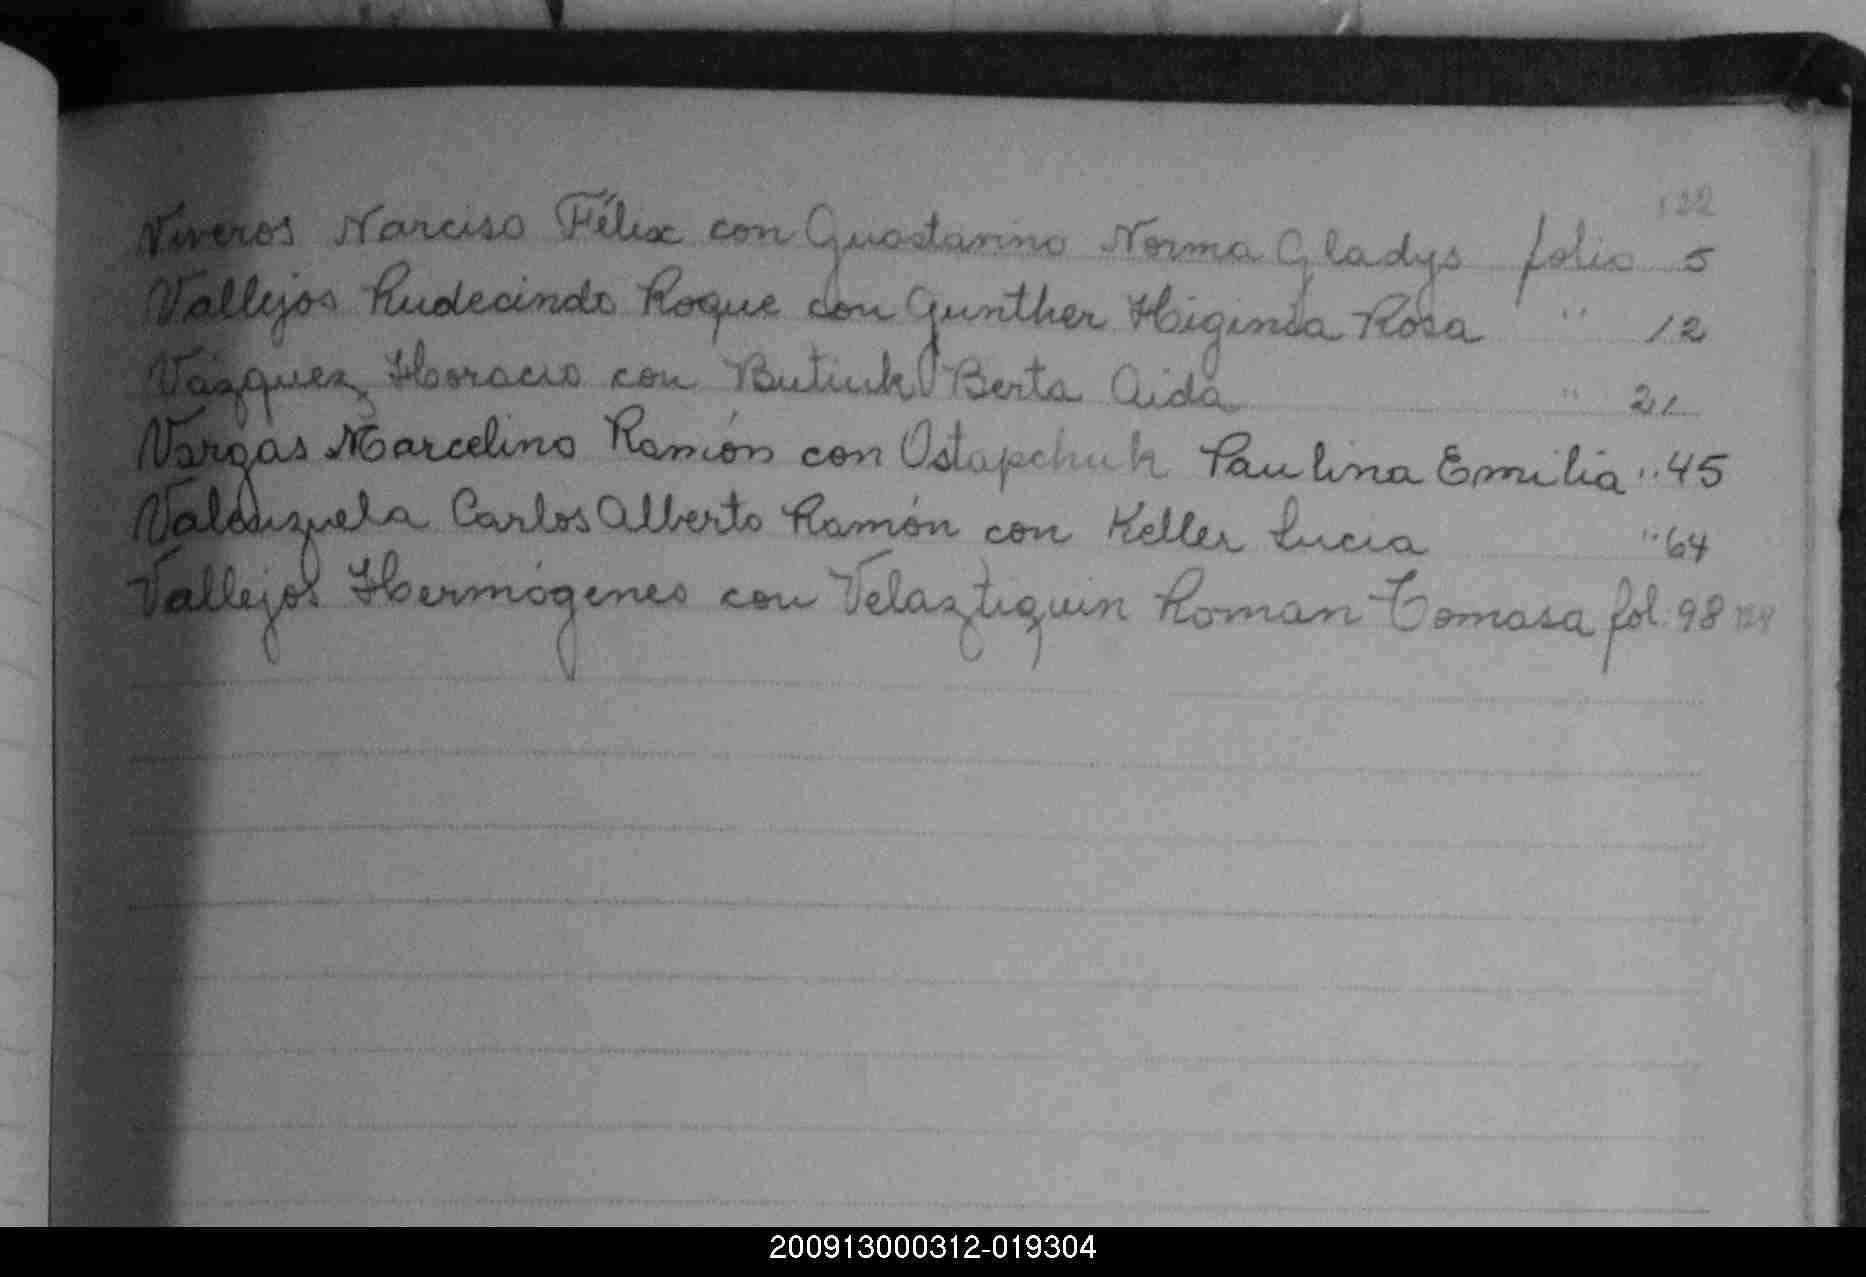 122
Viveros Narciso Félix con Guastarino Norma Gladys folio 5
Vallejos Rudecindo Roque con Gunther Higinia Rosa " 12
Vázquez Horacio con Butiuk Berta Aida " 21
Vargas Marcelino Ramón con Ostapchuk Paulina Emilia " 45
Valenzuela Carlos Alberto Ramón con Keller Lucia " 64
Vallejos Hermógenes con Velaztiquin Roman Tomasa fol. 98
200913000312-019304